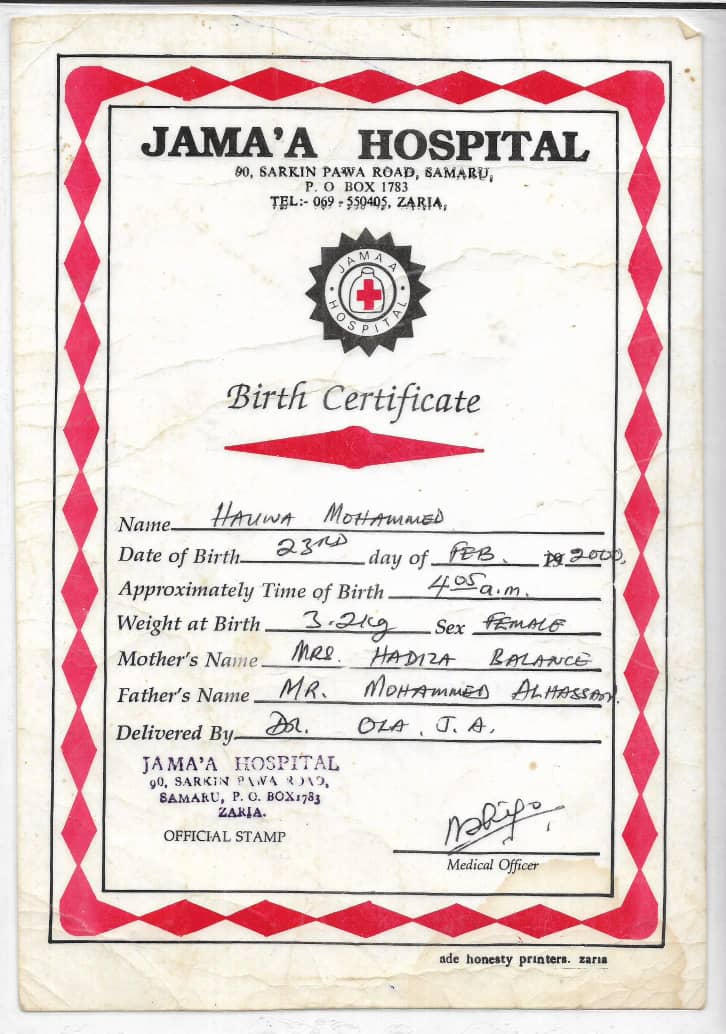 JAMA'A HOSPITAL
90, SARKIN PAWA ROAD, SAMARU,
P. O BOX 1783
TEL:- 069 - 550405, ZARIA,
JAMAA
HOSPITAL
Birth Certificate
Name HAUWA MOHAMMED
Date of Birth 23RD day of FEB. 19 2000,
Approximately Time of Birth 4.05 a.m.
Weight at Birth 3.2kg Sex FEMALE
Mother's Name MRS. HADIZA BALANCE
Father's Name MR. MOHAMMED ALHASSAN.
Delivered By DR. OLA, J. A.
JAMA'A HOSPITAL
90, SARKIN PAWA ROAD,
SAMARU, P. O. BOX1783
ZARIA.
OFFICIAL STAMP
Medical Officer
ade honesty printers. zaria